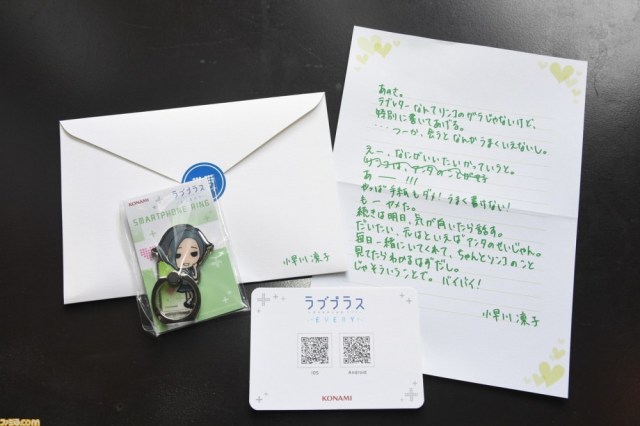 あのさ。
ラブレターなんてリンコのガラじゃないけど、
特別に書いてあげる。
...つーか、会うとなんかうまくいえないし。
えー、なにがいいたいかっていうと。
あー ―― !!!
やっぱ手紙もダメ!うまく書けない!
もーやめた。
続きは明日、気が向いたら話す。
だいたい、元はといえばアンタのせいじゃん。
毎日一緒にいてくれて、ちゃんとリンコのこと
見てたらわかるはずだし。
じゃそういうことで。バイバイ!
小早川 凛子
小早川 凛子
KONAMI
ラブプラス
SMARTPHONE RING
ラブプラス
iOS
Android
KONAMI
ファミ通.com